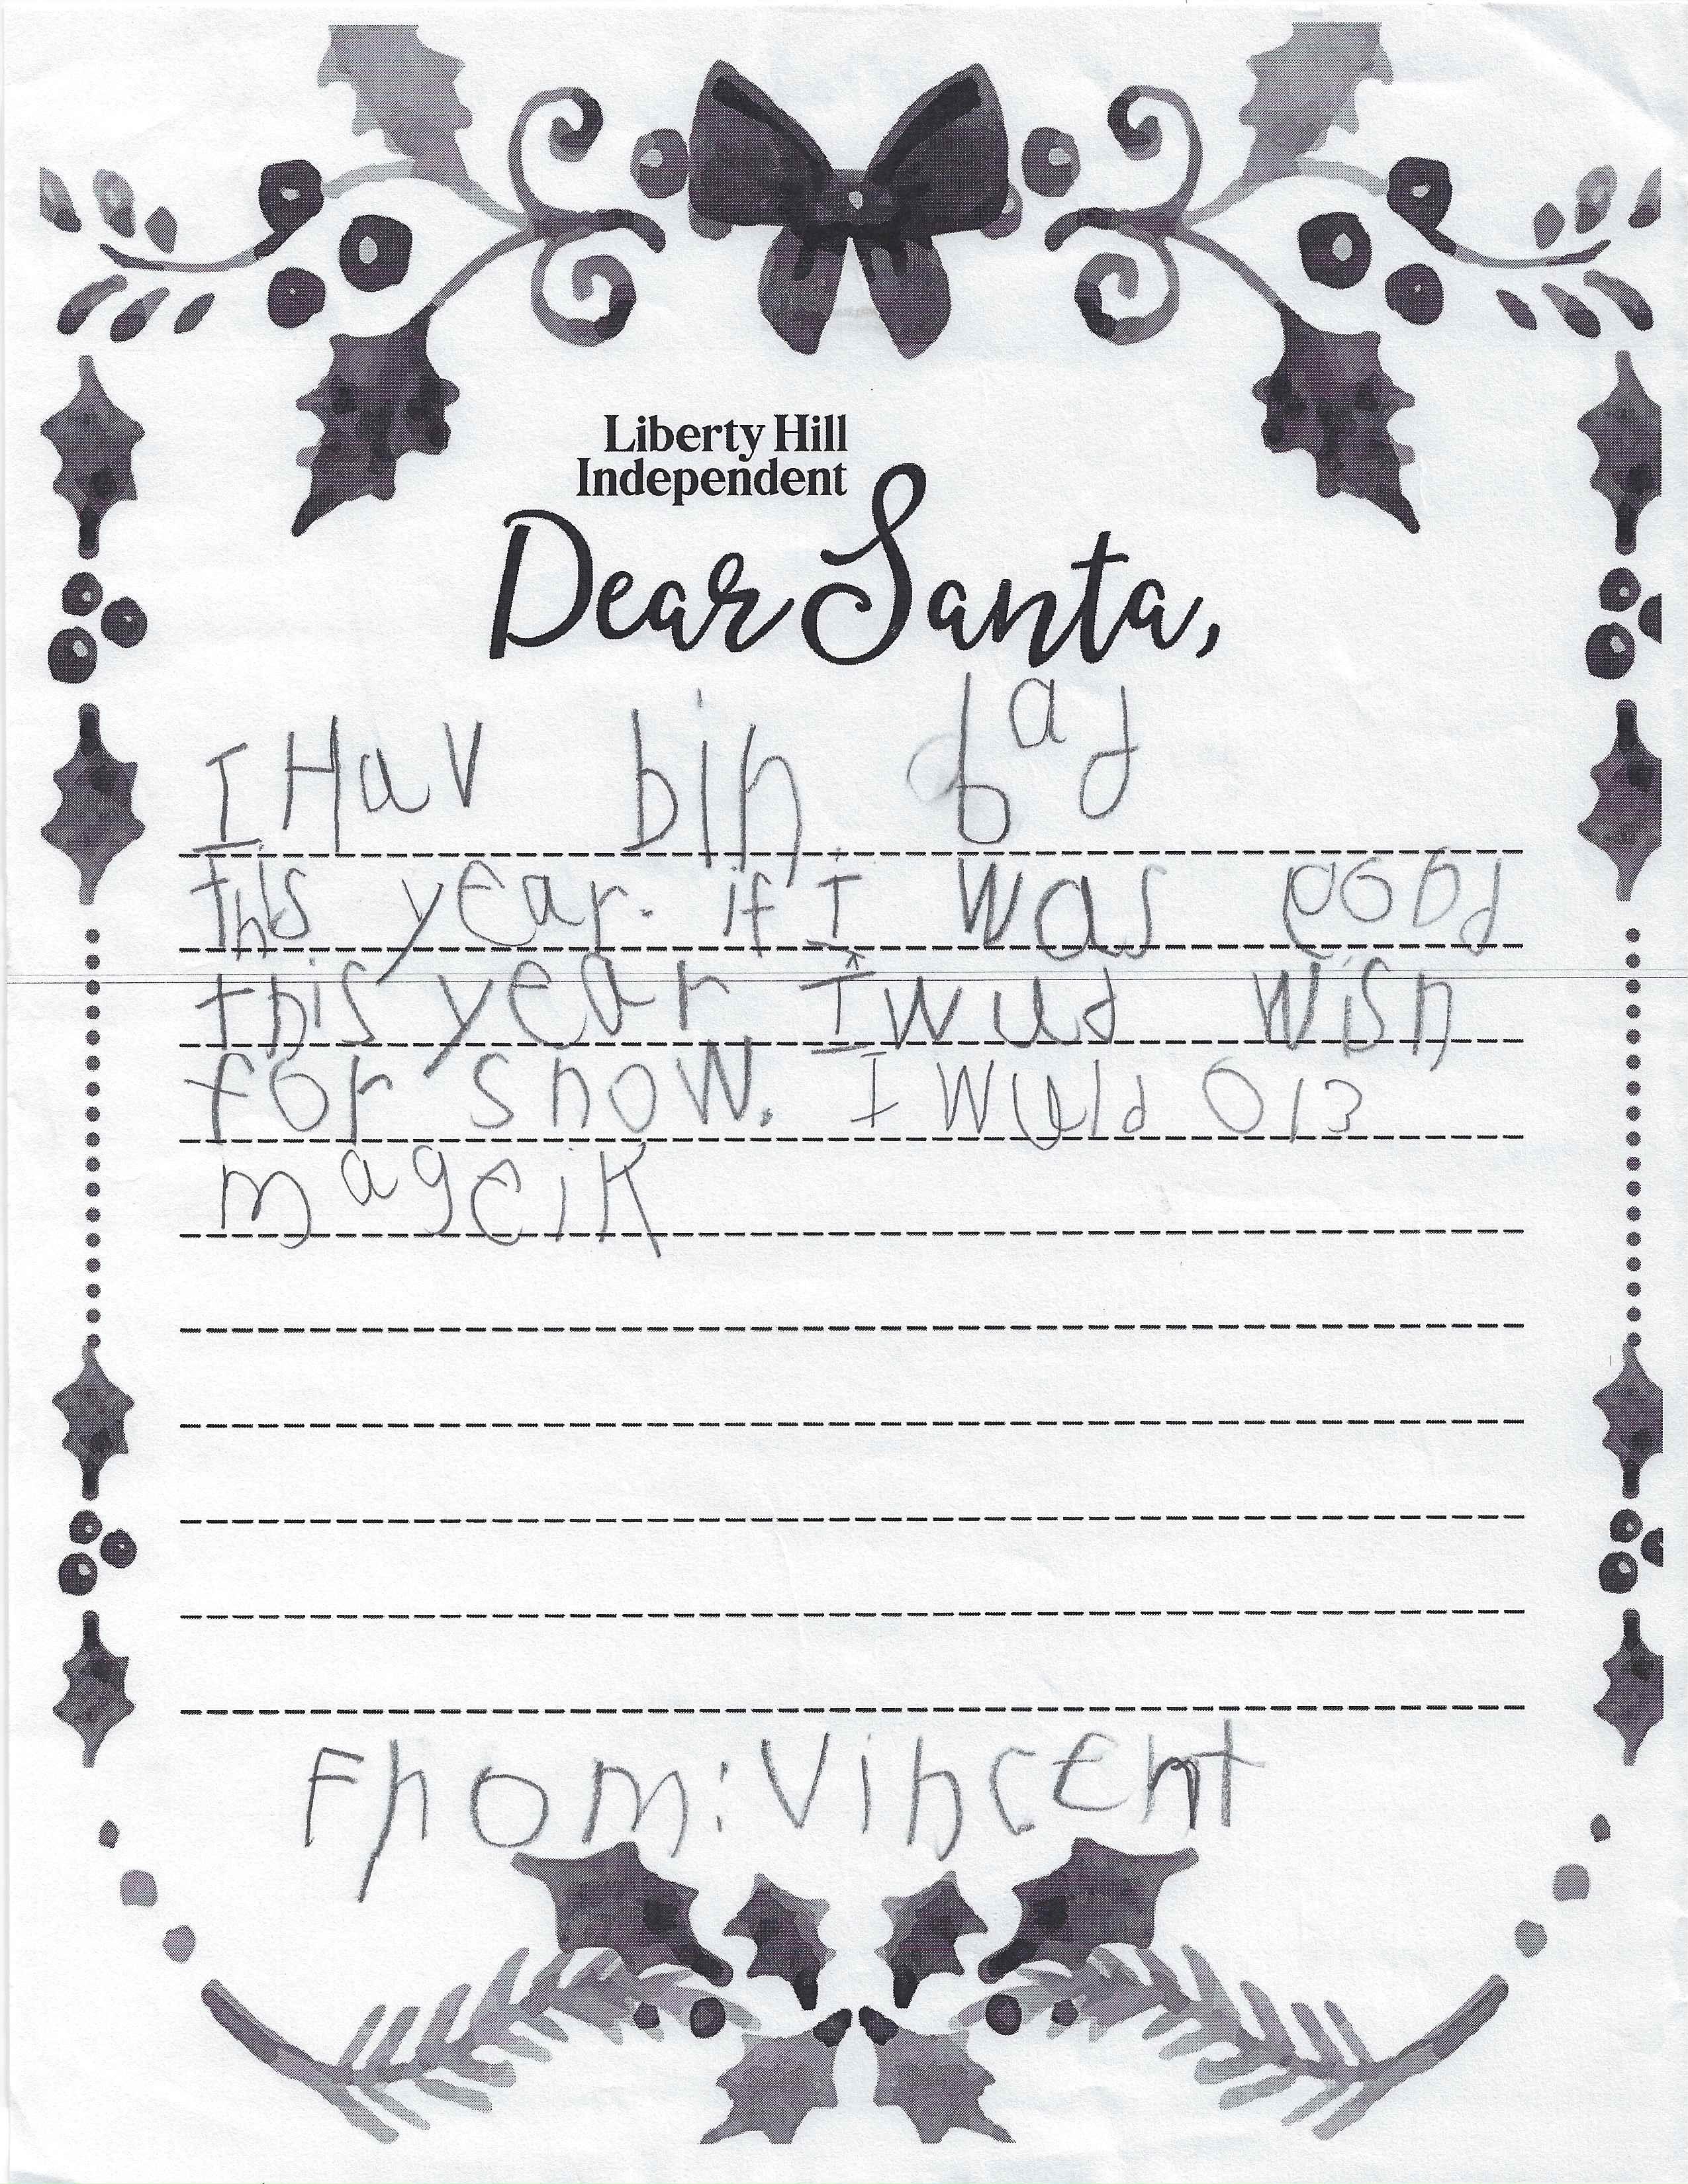 Liberty Hill
Independent
Dear Santa,
I Hav bin bad
this year. if I was good
this year I wud wish
for snow. I wuld ols
mageik
From: Vincent